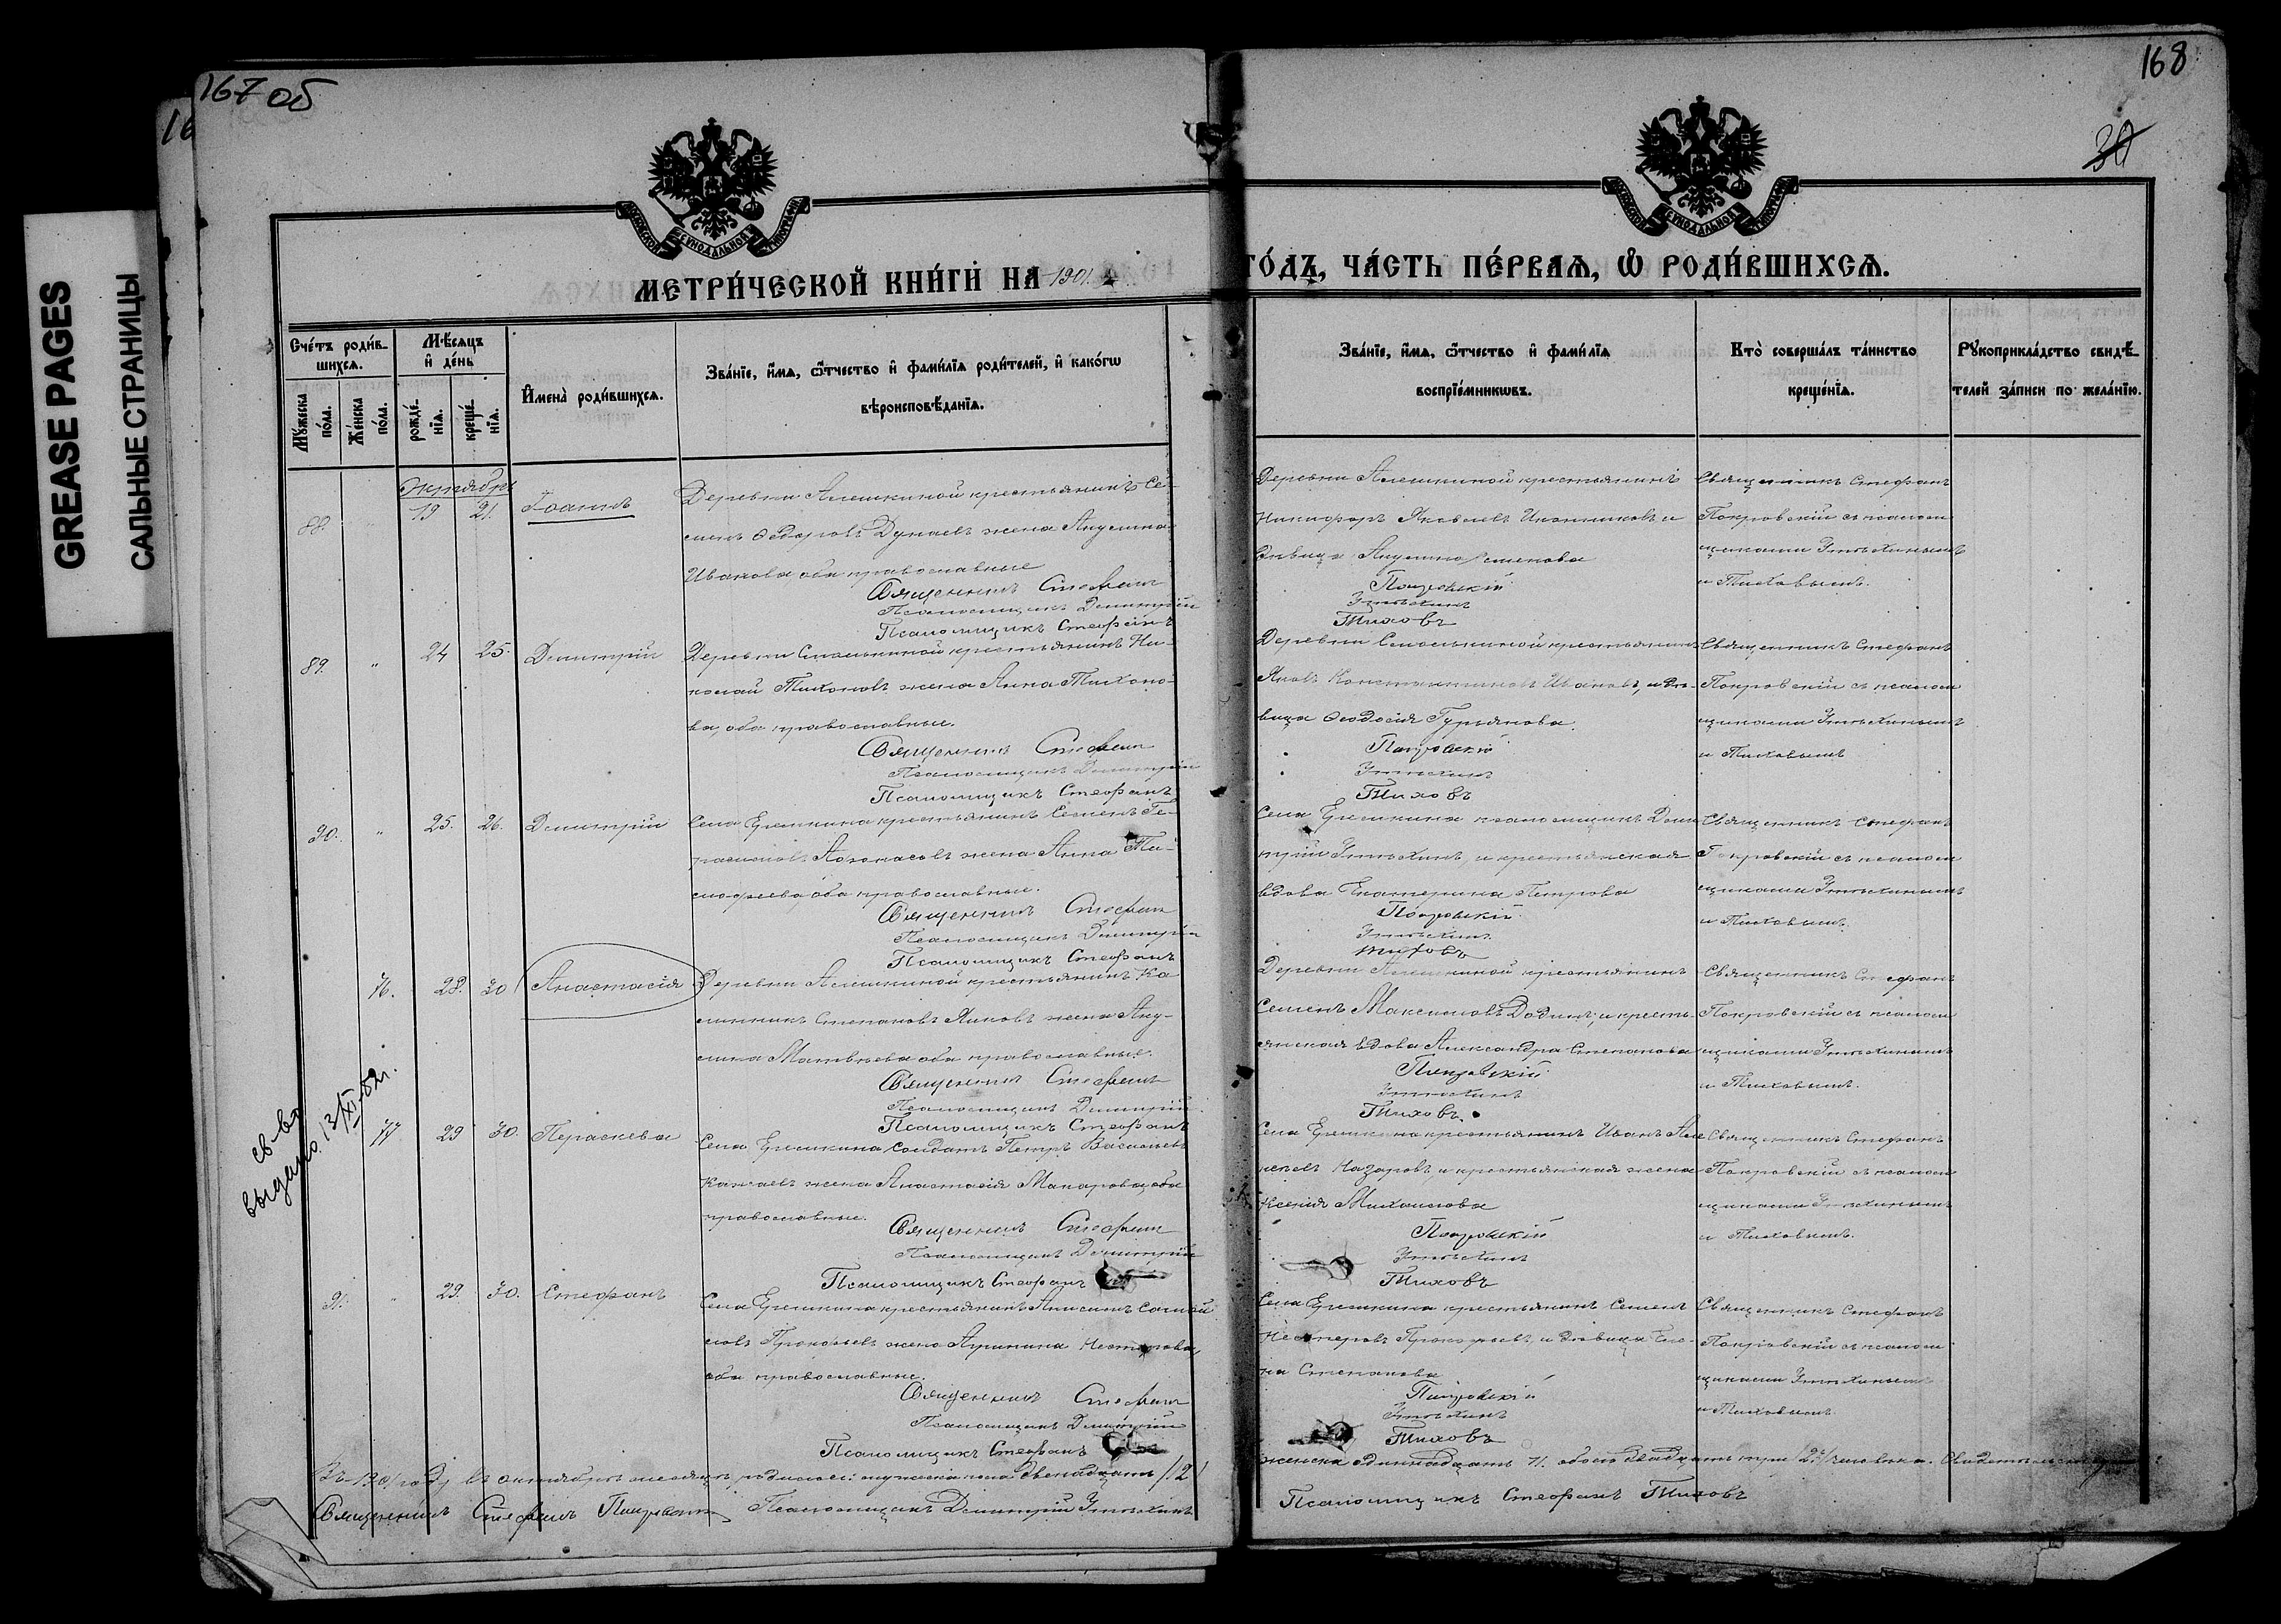 167 об
168
30
GREASE PAGES
САЛЬНЫЕ СТРАНИЦЫ
МОСКОВСКОЙ СѴНОДАЛЬНОЙ ТИПОГРАФІИ
МОСКОВСКОЙ СѴНОДАЛЬНОЙ ТИПОГРАФІИ
МЕТРИ́ЧЕСКОЙ КНИ́ГИ НА 1901.
ГО́ДЪ, ЧА́СТЬ ПЕ́РВАЯ, Ѡ РОДИ́ВШИХСЯ.
Сче́тъ роди́в-
шихся.
Мꙋ́жеска
по́ла.
Же́нска
по́ла.
Мѣ́сяцъ
и де́нь
рожде́-
нїя.
креще́-
нїя.
И҆мена̀ роди́вшихся.
Зва́нїе, и҆́мя, ѻ҆́тчество и҆ фами́лїя роди́телей, и҆ како́гѡ
вѣроисповѣ́данїя.
Зва́нїе, и҆́мя, ѻ҆́тчество и҆ фами́лїя
воспрїе́мникѡвъ.
Кто̀ соверша́лъ та́инство
креще́нїя.
Рꙋкоприкла́дство свидѣ́-
телей за́писи по жела́нїю.
Октябрь
88. " 19 21. Іоаннъ
Деревни Алешкиной крестьянинъ Се-
менъ Ѳедоровъ Дунаевъ жена Акулина
Иванова оба православные
Священникъ Стефанъ
Псаломщикъ Димитрій
Псаломщикъ Стефанъ
Деревни Алешкиной крестьянинъ
Никифоръ Яковлевъ Иконниковъ и
дѣвица Акулина Семенова
Покровскій
Утѣхинъ
Тиховъ
Священникъ Стефанъ
Покровскій съ псалом
щиками Утѣхинымъ
и Тиховымъ.
89. " 24 25. Димитрій
Деревни крестьянинъ Ни-
колай Тихоновъ жена Анна Тихоно-
ва, оба православные.
Священникъ Стефанъ
Псаломщикъ Димитрій
Псаломщикъ Стефанъ
Деревни крестьянинъ
Яковъ Константиновъ Ивановъ, и дѣ-
вица Ѳеодосія Гурьянова.
Покровскій
Утѣхинъ
Тиховъ
Священникъ Стефанъ
Покровскій съ псалом
щиками Утѣхинымъ
и Тиховымъ
90. " 25. 26. Димитрій
Села Еремкина крестьянинъ Семенъ Ге-
расимовъ Аѳанасьевъ жена Анна Ти-
моѳеева, оба православные.
Священникъ Стефанъ
Псаломщикъ Димитрій
Псаломщикъ Стефанъ
Села Еремкина псаломщикъ Дими
трій Утѣхинъ, и крестьянская
вдова Екатерина Петрова
Покровскій
Утѣхинъ
Тиховъ
Священникъ Стефанъ
Покровскій съ псалом
щиками Утѣхинымъ
и Тиховымъ
76. 28. 30 Анастасія
Деревни Алешкиной крестьянинъ Ка
линникъ Степановъ жена Аку-
лина Матвѣева оба православные.
Священникъ Стефанъ
Псаломщикъ Димитрій
Псаломщикъ Стефанъ
Деревни Алешкиной крестьянинъ
Семенъ Максимовъ Додинъ, и кресть-
янская вдова Александра Степанова
Покровскій
Утѣхинъ
Тиховъ.
Священникъ Стефанъ
Покровскій съ псалом
щиками Утѣхинымъ
и Тиховымъ.
св-во
выдано 13/XI-82г.
77 29 30. Параскева
Села Еремкина солдатъ Петръ Васильевъ
жена Анастасія Макарова, оба
православные.
Священникъ Стефанъ
Псаломщикъ Димитрій
Псаломщикъ Стефанъ
Села Еремкина крестьянинъ Иванъ Але
ксѣевъ Назаровъ, и крестьянская жена
Ксенія Михаилова
Покровскій
Утѣхинъ
Тиховъ
Священникъ Стефанъ
Покровскій съ псалом
щиками Утѣхинымъ
и Тиховымъ.
91. " 29. 30. Стефанъ
Села Еремкина крестьянинъ Анисимъ Самой
ловъ Прокофьевъ жена Агрипина Нестерова,
оба православные.
Священникъ Стефанъ
Псаломщикъ Димитрій
Псаломщикъ Стефанъ
Села Еремкина крестьянинъ Семенъ
Нестеровъ Прокофьевъ, и дѣвица Еле-
на Степанова
Покровскій
Утѣхинъ
Тиховъ
Священникъ Стефанъ
Покровскій съ псалом
щиками Утѣхинымъ
и Тиховымъ
Въ 1901 году въ октябрѣ мѣсяцѣ родилось: мужеска пола двенадцать /12/
женска одиннадцать 11. обоего двадцать три /23/ человѣка.
Священникъ Стефанъ Покровскій Псаломщикъ Димитрій Утѣхинъ
Псаломщикъ Стефанъ Тиховъ